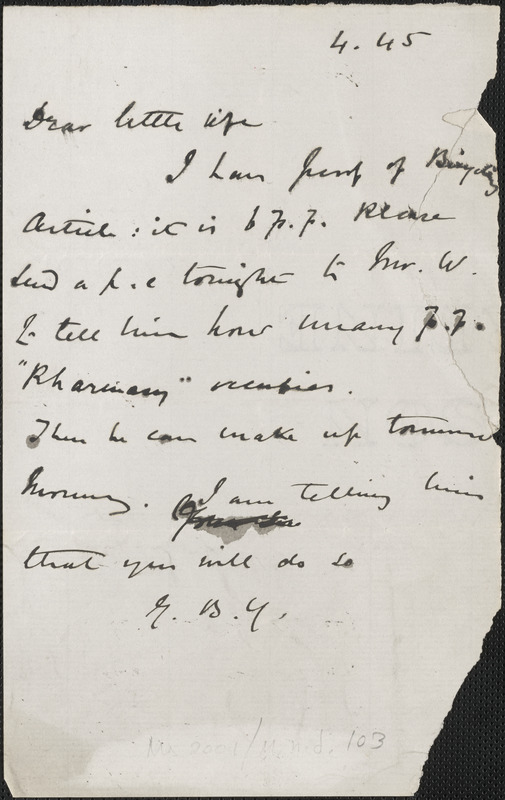 4.45
Dear little wife
I have proof of Bicycling
Article: it is 6 p.p. Please
send a p.c tonight to Mr. W.
to tell him how many p.p.
"Pharmacy" occupies.
Then he can make up tomorrow
Morning. I am telling him
that you will do so
Y.
103